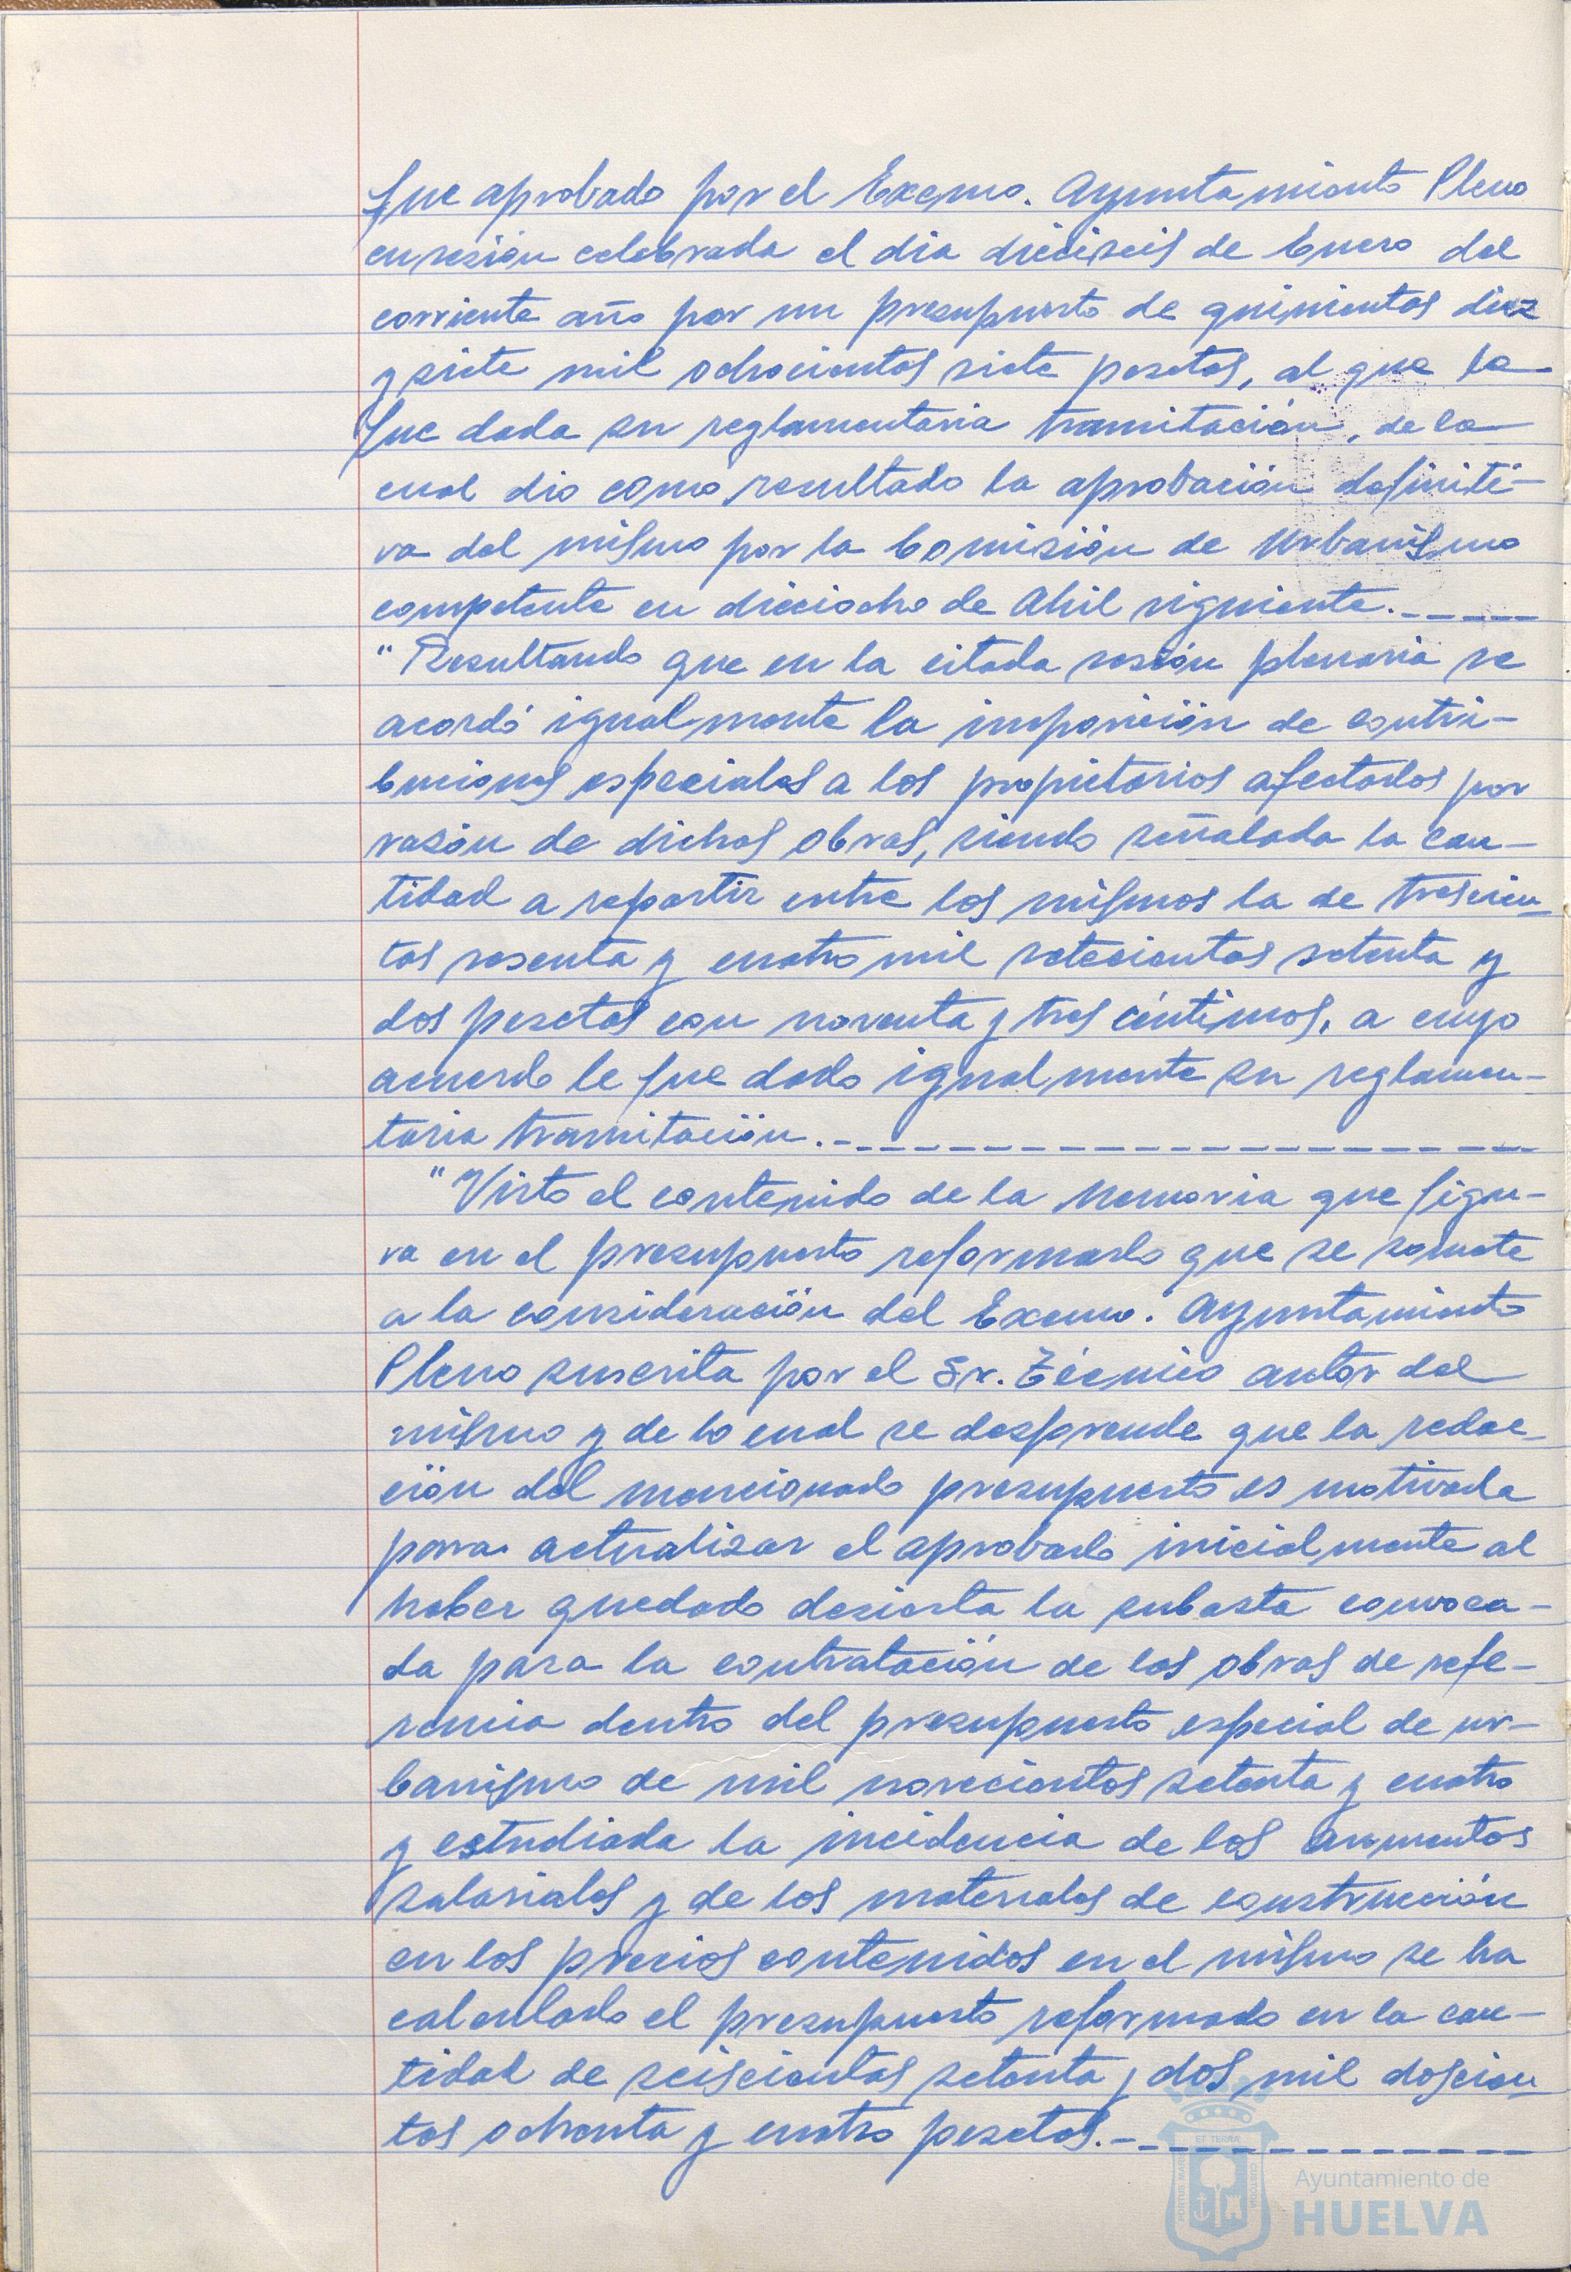 fue aprobado por el Excmo. Ayuntamiento Pleno
en sesión celebrada el dia dieciseis de Enero del
corriente año por un presupuesto de quinientas diez
y siete mil ochocientas siete pesetas, al que le
fue dada su reglamentaria tramitación, de la
cual dio como resultado la aprobación definiti-
va del mismo por la Comisión de Urbanismo
competente en dieciocho de Abril siguiente.
"Resultando que en la citada sesión plenaria se
acordó igualmente la imposición de contri-
buciones especiales a los propietarios afectados por
razón de dichas obras, siendo señalada la can-
tidad a repartir entre los mismos la de trescien-
tas sesenta y cuatro mil setecientas setenta y
dos pesetas con noventa y tres céntimos, a cuyo
acuerdo le fue dado igualmente su reglamen-
taria tramitación.
"Visto el contenido de la Memoria que figu-
ra en el presupuesto reformado que se somete
a la consideración del Excmo. Ayuntamiento
Pleno suscrita por el Sr. Técnico autor del
mismo y de lo cual se desprende que la redac-
ción del mencionado presupuesto es motivada
para actualizar el aprobado inicialmente al
haber quedado desierta la subasta convoca-
da para la contratación de las obras de refe-
rencia dentro del presupuesto especial de ur-
banismo de mil novecientos setenta y cuatro
y estudiada la incidencia de los aumentos
salariales y de los materiales de construcción
en los precios contenidos en el mismo se ha
calculado el presupuesto reformado en la can-
tidad de seiscientas setenta y dos mil doscien-
tas ochenta y cuatro pesetas.
ET TERRÆ
PORTUS MARIS
CUSTODIA
Ayuntamiento de
HUELVA